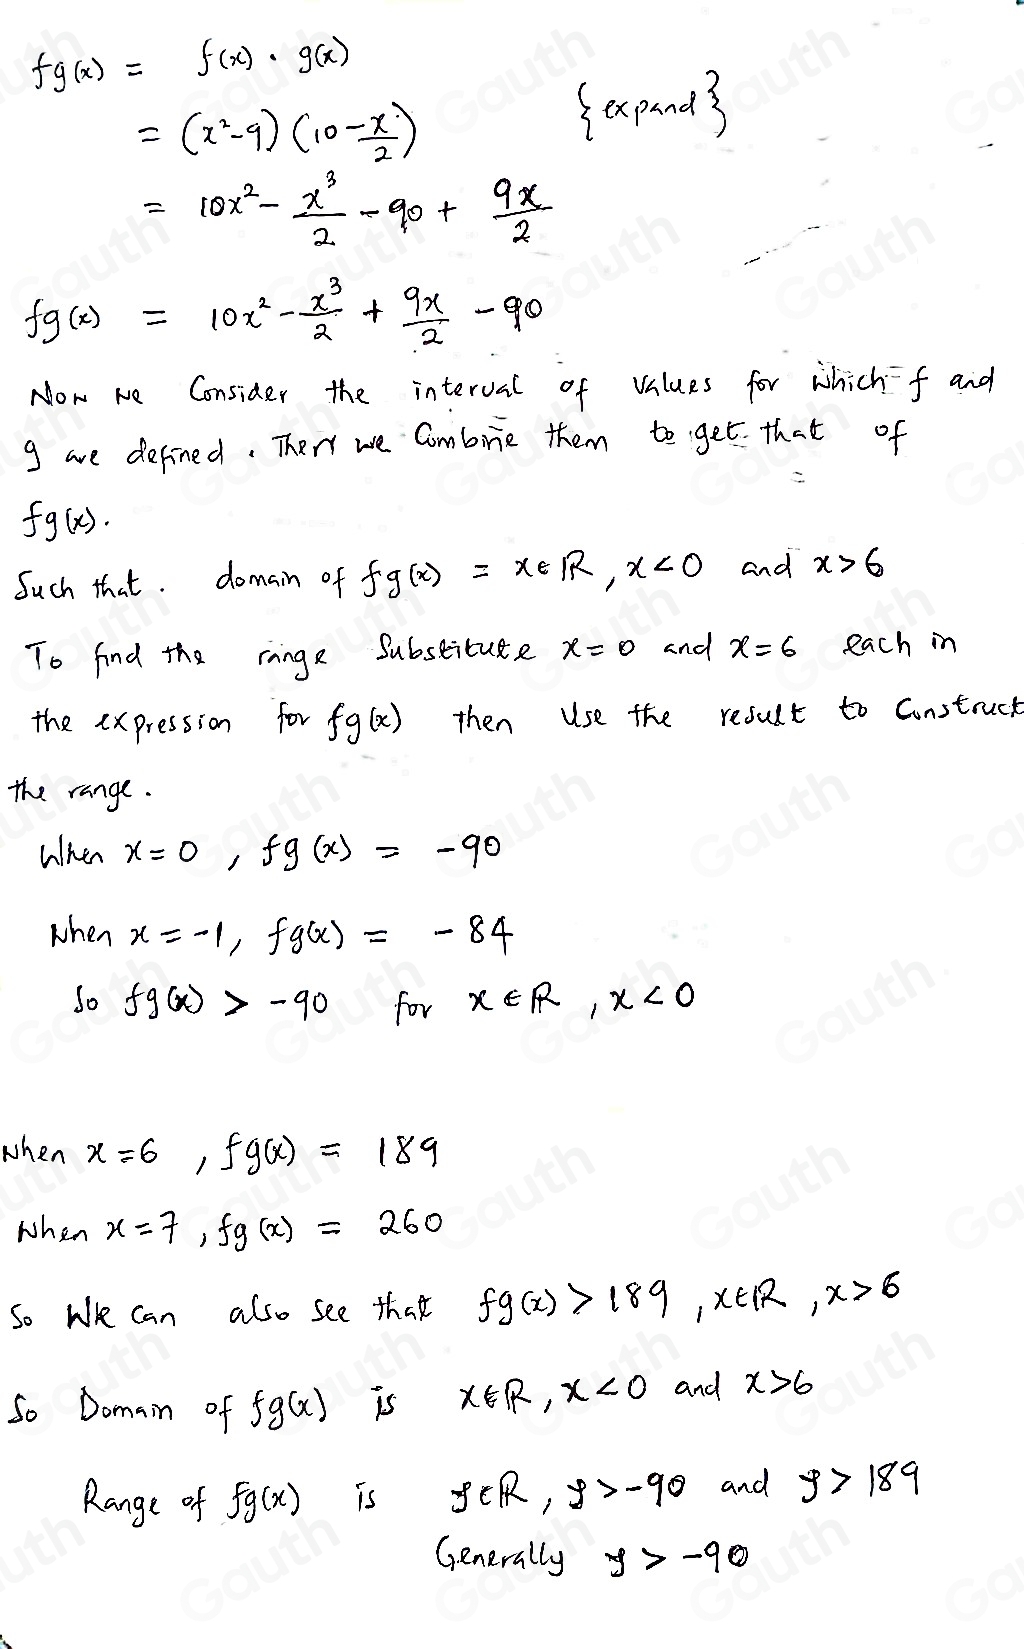 fg(x) = f(x) · g(x)
= (x²-9) (10 - x/2) {expand}
= 10x² - x³/2 - 90 + 9x/2
fg(x) = 10x² - x³/2 + 9x/2 - 90
Now we Consider the interval of values for which f and
g are defined. Then we Combine them to get that of
fg(x).
Such that. domain of fg(x) = x∈ℝ, x<0 and x>6
To find the range Substitute x=0 and x=6 each in
the expression for fg(x) then Use the result to Construct
the range.
When x=0, fg(x) = -90
When x=-1, fg(x) = -84
So fg(x) > -90 for x∈ℝ, x<0
When x=6, fg(x) = 189
When x=7, fg(x) = 260
So We can also see that fg(x)>189, x∈ℝ, x>6
So Domain of fg(x) is x∈ℝ, x<0 and x>6
Range of fg(x) is y∈ℝ, y>-90 and y>189
Generally y>-90